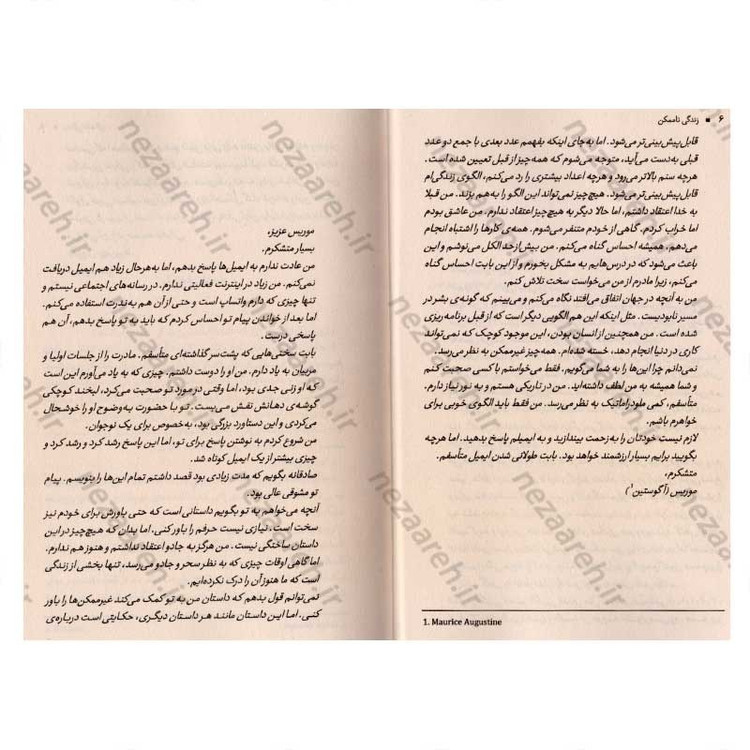 ۶ ■ زندگی ناممکن
قابل‌پیش‌بینی‌تر می‌شود. اما به‌جای اینکه بفهمم عدد بعدی با جمع دو عدد
قبلی به‌دست می‌آید، متوجه می‌شوم که همه‌چیز از قبل تعیین شده است.
هرچه سنم بالاتر می‌رود و هرچه اعداد بیشتری را رد می‌کنم، الگوی زندگی‌ام
قابل‌پیش‌بینی‌تر می‌شود. هیچ‌چیز نمی‌تواند این الگو را به‌هم بزند. من قبلا
به خدا اعتقاد داشتم، اما حالا دیگر به هیچ‌چیز اعتقاد ندارم. من عاشق بودم
اما خراب کردم. گاهی از خودم متنفر می‌شوم. همه‌ی کارها را اشتباه انجام
می‌دهم. همیشه احساس گناه می‌کنم. من بیش‌ازحد الکل می‌نوشم و این
باعث می‌شود که در درس‌هایم به مشکل بخورم و از این بابت احساس گناه
می‌کنم، زیرا مادرم از من می‌خواست سخت تلاش کنم.
من به آنچه در جهان اتفاق می‌افتد نگاه می‌کنم و می‌بینم که گونه‌ی بشر در
مسیر نابودیست. مثل اینکه این هم الگویی دیگر است که از قبل برنامه‌ریزی
شده است. من همچنین از انسان بودن، این موجود کوچک که نمی‌تواند
کاری در دنیا انجام دهد، خسته شده‌ام. همه‌چیز غیرممکن به نظر می‌رسد.
نمی‌دانم چرا این‌ها را به شما می‌گویم. فقط می‌خواستم با کسی صحبت کنم
و شما همیشه به من لطف داشته‌اید. من در تاریکی هستم و به نور نیاز دارم.
متأسفم، کمی ملودراماتیک به نظر می‌رسد. من فقط باید الگوی خوبی برای
خواهرم باشم.
لازم نیست خودتان را به زحمت بیندازید و به ایمیلم پاسخ بدهید. اما هرچه
بگویید برایم بسیار ارزشمند خواهد بود. بابت طولانی شدن ایمیل متأسفم.
متشکرم،
موریس (آگوستین¹)
1. Maurice Augustine
موریس عزیز،
بسیار متشکرم.
من عادت ندارم به ایمیل‌ها پاسخ بدهم، اما به‌هرحال زیاد هم ایمیل دریافت
نمی‌کنم. من زیاد در اینترنت فعالیتی ندارم. در رسانه‌های اجتماعی نیستم و
تنها چیزی که دارم واتساپ است و حتی از آن هم به‌ندرت استفاده می‌کنم.
اما بعد از خواندن پیام تو احساس کردم که باید به تو پاسخ بدهم، آن هم
پاسخی درست.
بابت سختی‌هایی که پشت‌سر گذاشته‌ای متأسفم. مادرت را از جلسات اولیا و
مربیان به یاد دارم. من او را دوست داشتم. چیزی که به یاد می‌آورم این است
که او زنی جدی بود، اما وقتی در مورد تو صحبت می‌کرد، لبخند کوچکی
گوشه‌ی دهانش نقش می‌بست. تو با حضورت به‌وضوح او را خوشحال
می‌کردی و این دستاورد بزرگی بود، به‌خصوص برای یک نوجوان.
من شروع کردم به نوشتن پاسخ برای تو، اما این پاسخ رشد کرد و رشد کرد و
چیزی بیشتر از یک ایمیل کوتاه شد.
صادقانه بگویم که مدت زیادی بود قصد داشتم تمام این‌ها را بنویسم. پیام
تو مشوقی عالی بود.
آنچه می‌خواهم به تو بگویم داستانی است که حتی باورش برای خودم نیز
سخت است. نیازی نیست حرفم را باور کنی. اما بدان که هیچ‌چیز در این
داستان ساختگی نیست. من هرگز به جادو اعتقاد نداشتم و هنوز هم ندارم.
اما گاهی اوقات چیزی که به نظر سحر و جادو می‌رسد، تنها بخشی از زندگی
است که ما هنوز آن را درک نکرده‌ایم.
نمی‌توانم قول بدهم که داستان من به تو کمک می‌کند غیرممکن‌ها را باور
کنی. اما این داستان مانند هر داستان دیگری، حکایتی است درباره‌ی
nezaareh.ir
nezaareh.ir
nezaareh.ir
nezaareh.ir
nezaareh.ir
nezaareh.ir